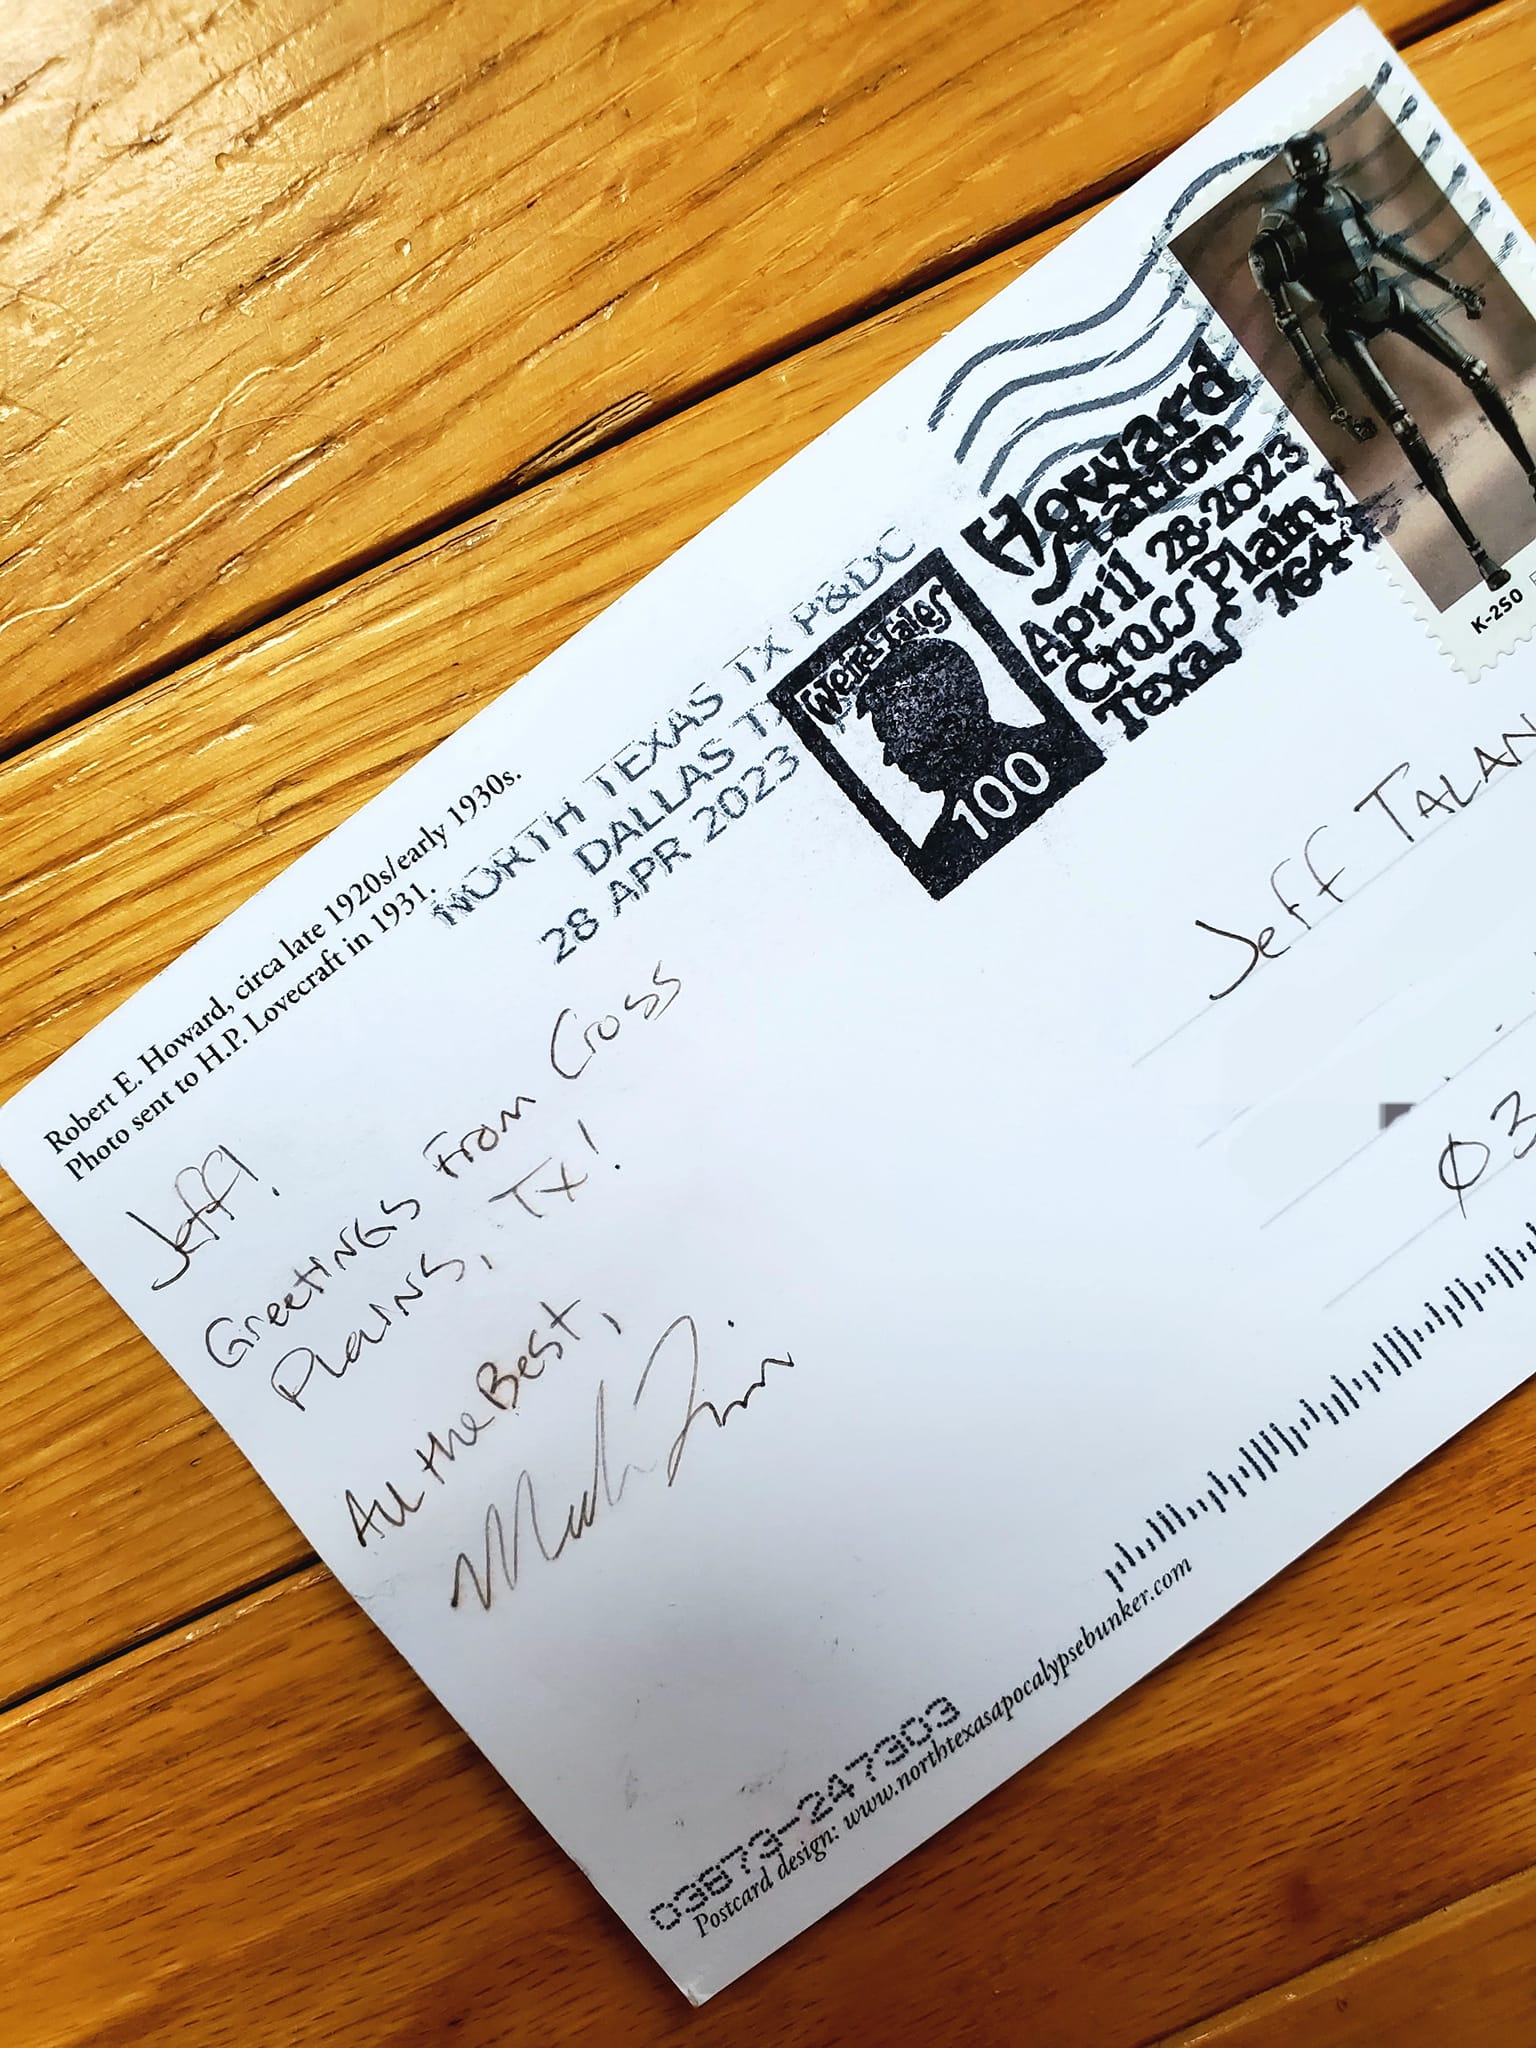 Robert E. Howard, circa late 1920s/early 1930s.
Photo sent to H.P. Lovecraft in 1931.
NORTH TEXAS TX P&DC
DALLAS TX
28 APR 2023
Weird Tales
100
Howard
Station
April 28-2023
Cross Plains
Texas 764
K-250
Jeff!
Greetings From Cross
Plains, Tx!
All the Best,
Jeff Talan
03
03873-247303
Postcard design: www.northtexasapocalypsebunker.com